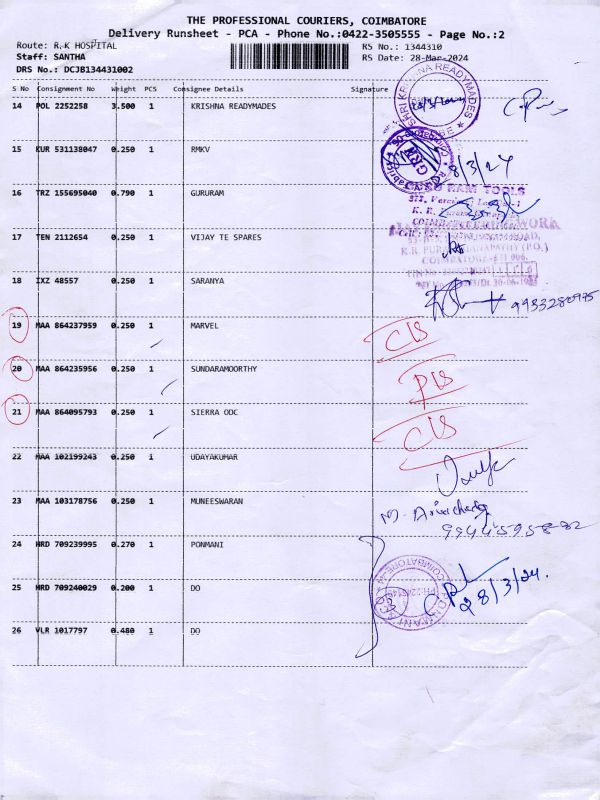 THE PROFESSIONAL COURIERS, COIMBATORE
Delivery Runsheet - PCA - Phone No.:0422-3505555 - Page No.:2
Route: R.K HOSPITAL
RS No.: 1344310
Staff: SANTHA
RS Date: 28-Mar-2024
DRS No.: DCJB134431002
S No Consignment No Weight PCS Consignee Details Signature
14 POL 2252258 3.500 1 KRISHNA READYMADES
SHRI KRISHNA READYMADES
15 KUR 531138047 0.250 1 RMKV
8/3/24
16 TRZ 155695040 0.790 1 GURURAM
RAM TOOLS
17 TEN 2112654 0.250 1 VIJAY TE SPARES
COIMBATORE-641 006.
18 IXZ 48557 0.250 1 SARANYA
19 MAA 864237959 0.250 1 MARVEL
20 MAA 864235956 0.250 1 SUNDARAMOORTHY
21 MAA 864095793 0.250 1 SIERRA ODC
22 MAA 102199243 0.250 1 UDAYAKUMAR
23 MAA 103178756 0.250 1 MUNEESWARAN
24 HRD 709239995 0.270 1 PONMANI
25 HRD 709240029 0.200 1 DO
28/3/24.
26 VLR 1017797 0.480 1 DO